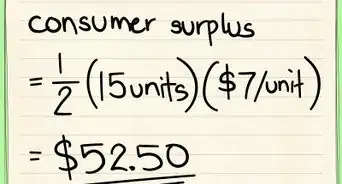 consumer surplus
= 1/2 (15 units)($7/unit)
= $52.50